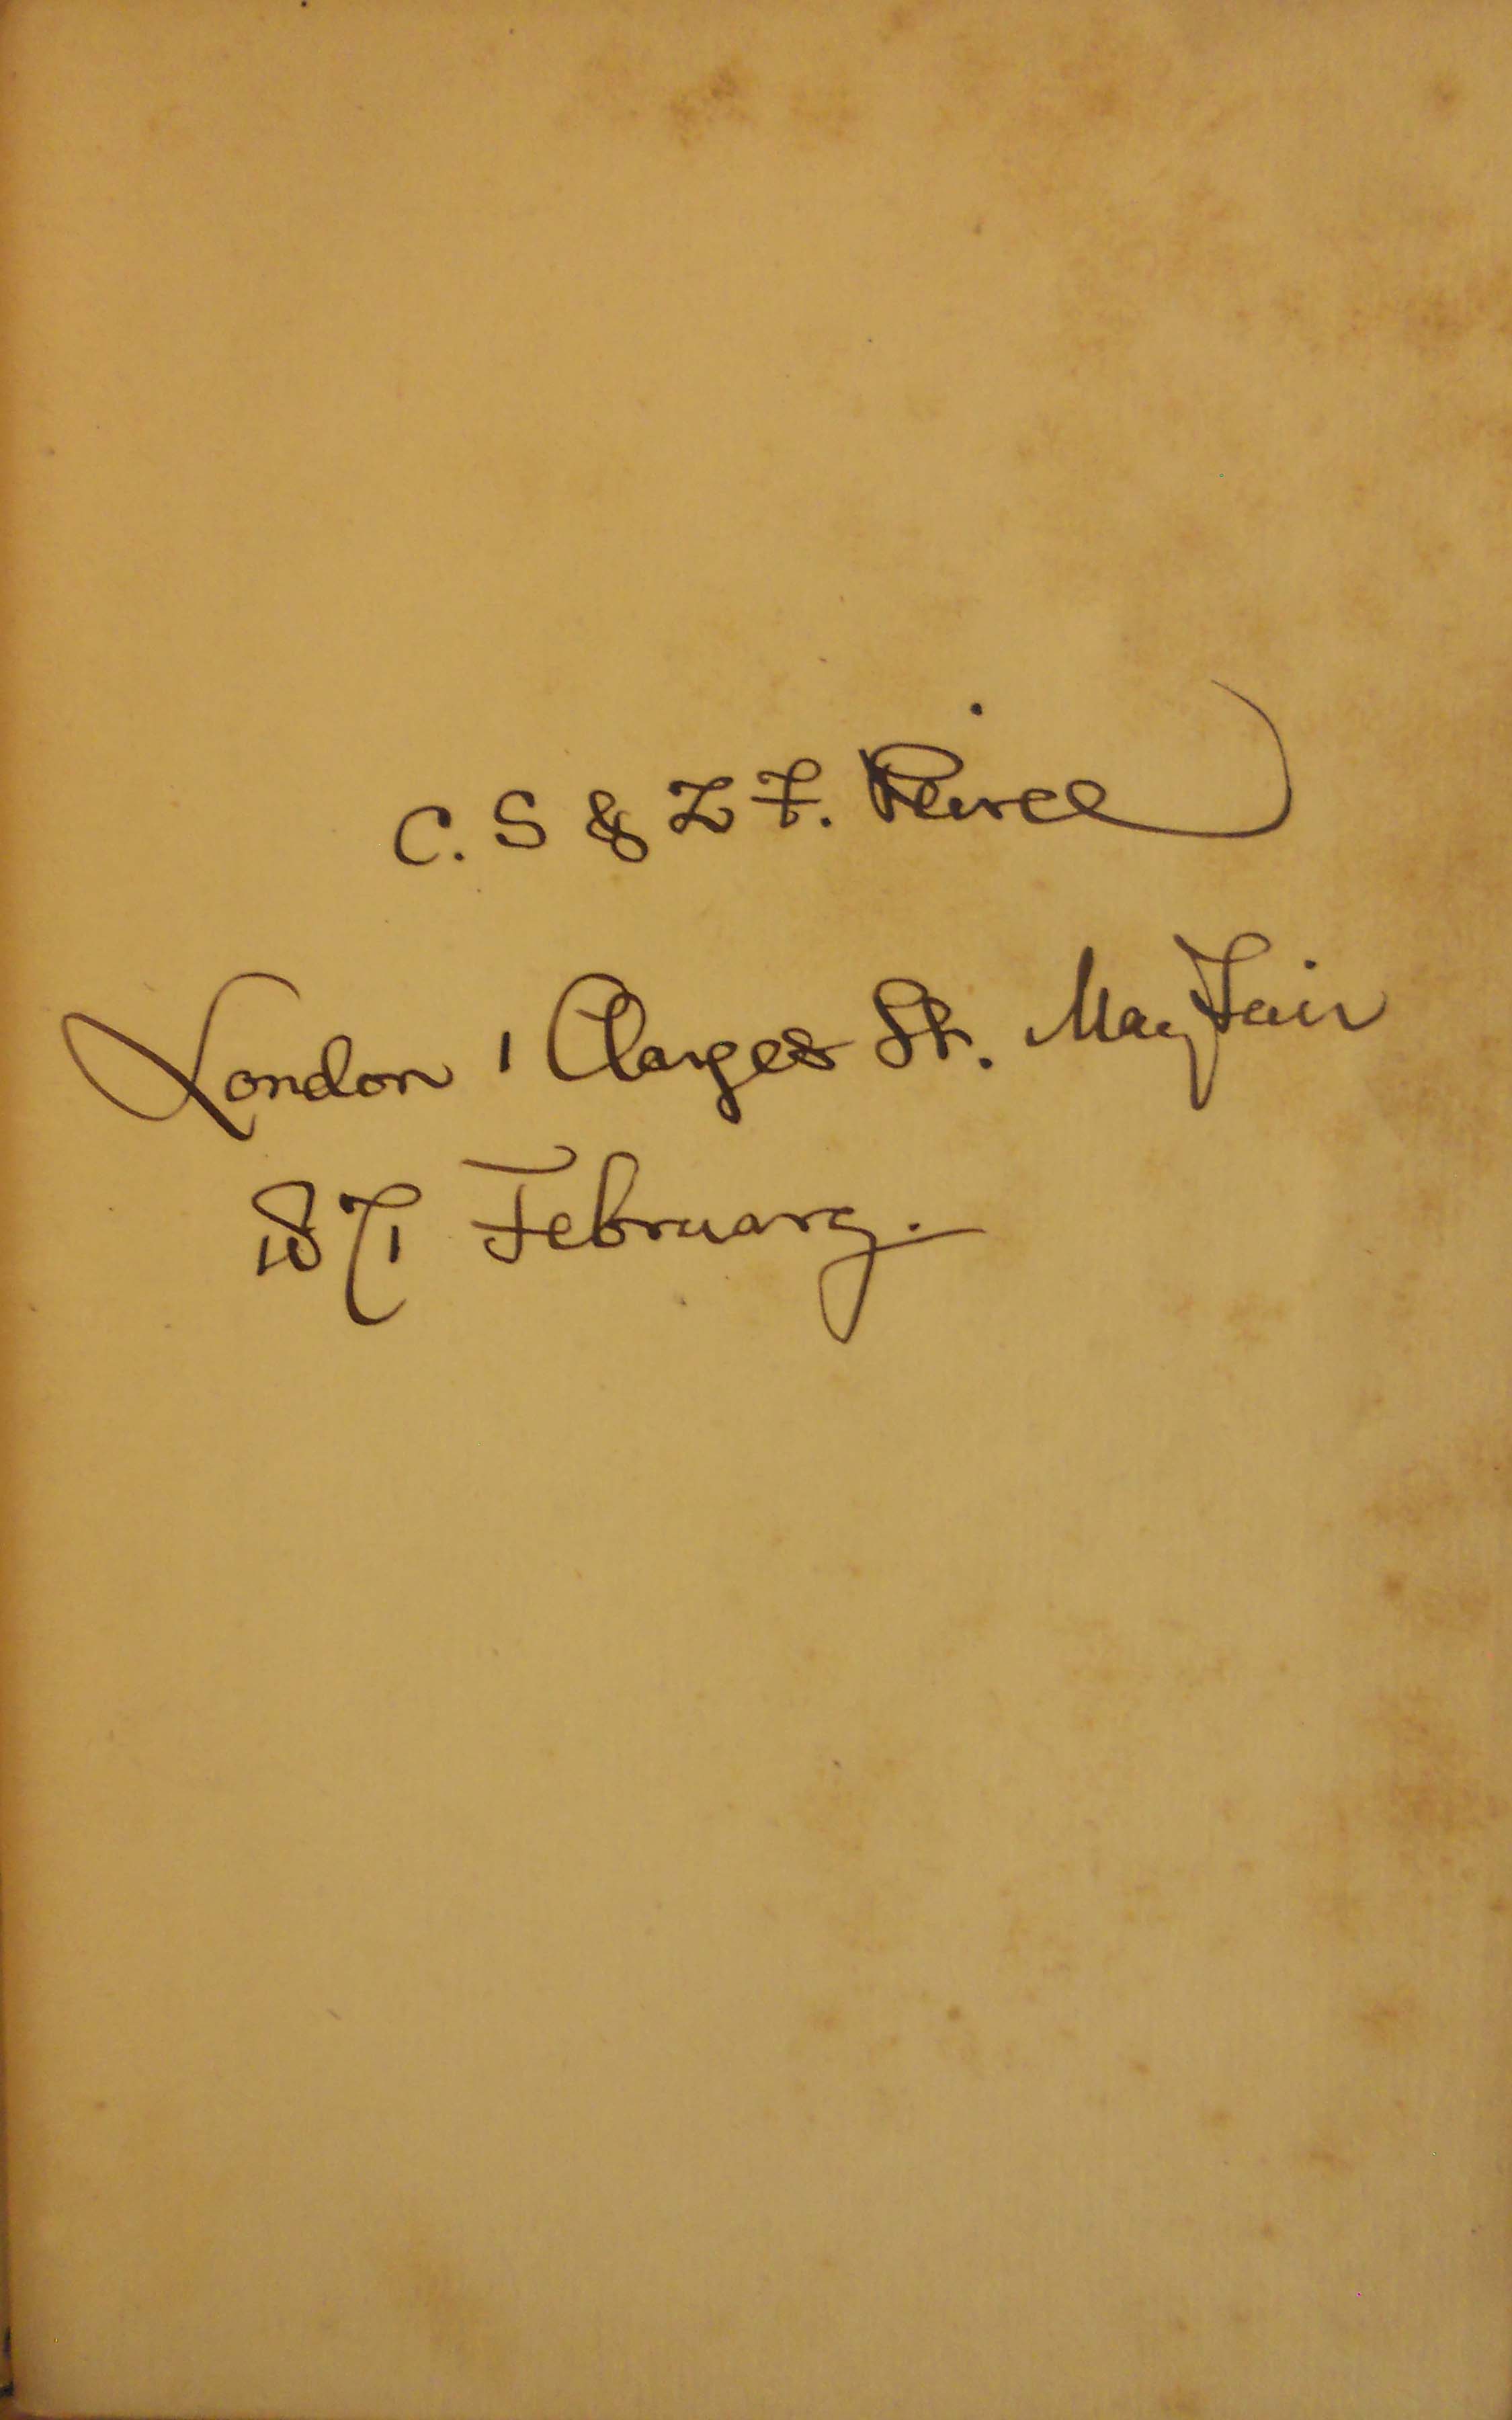 C. S & Z F. Peirce
London 1 Clarges St. May Fair
1871 February.